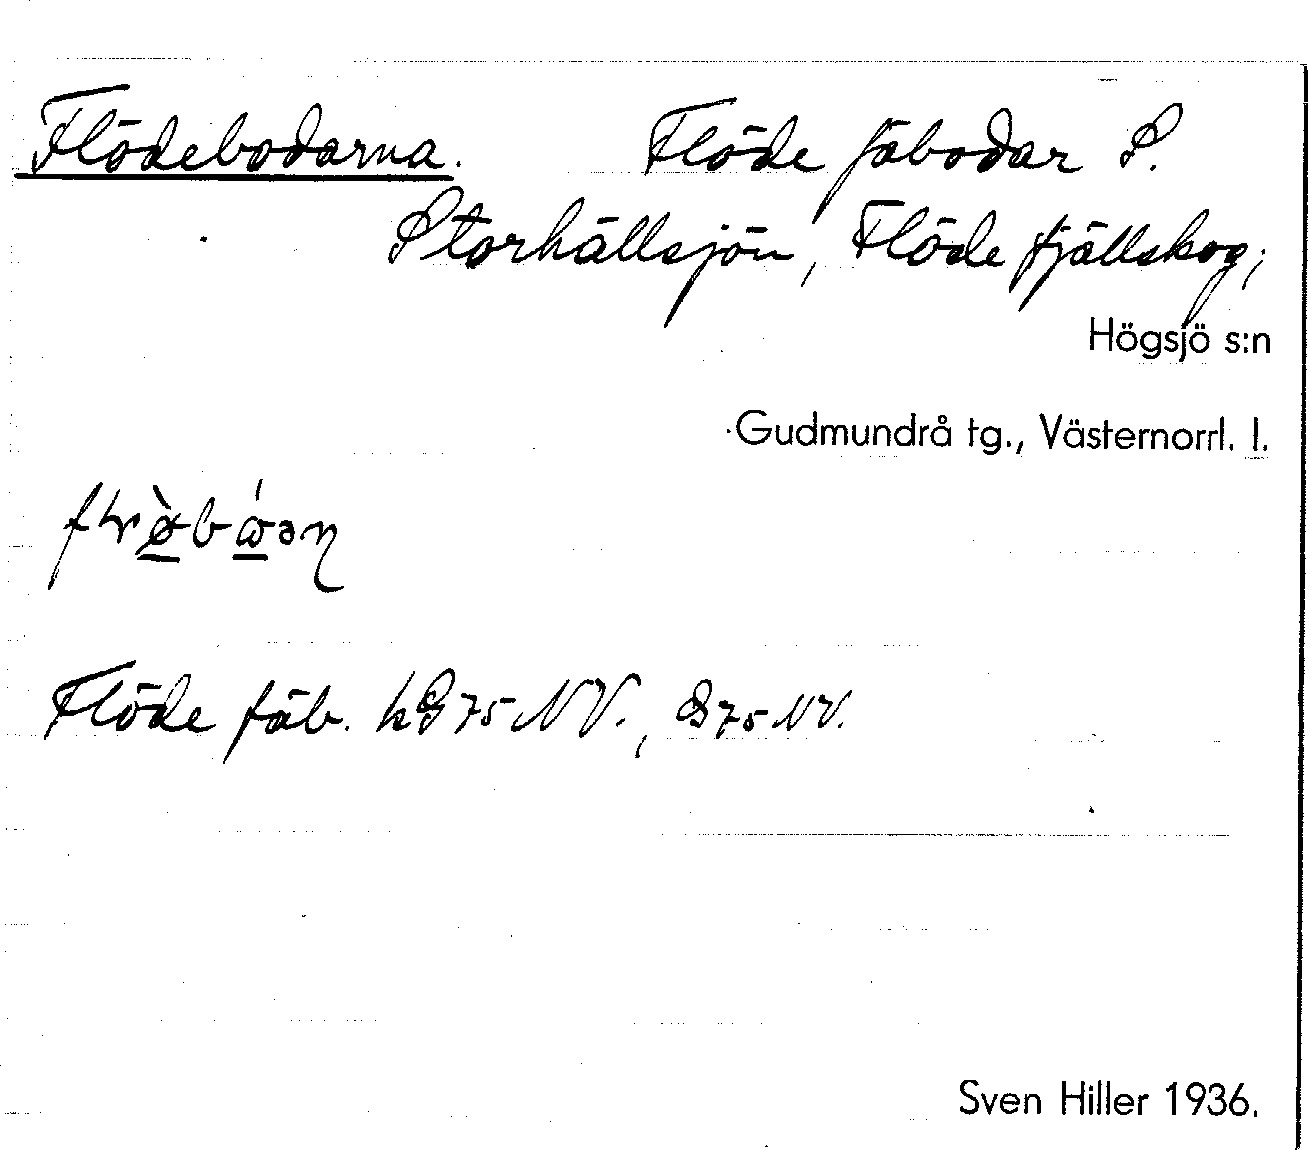 Flödebodarna. Flöde fäbodar S.
Storhällsjön, Flöde fjällskog;
Högsjö s:n
Gudmundrå tg., Västernorrl. l.
Flöde fäb. kG75NV., G75NV.
Sven Hiller 1936.